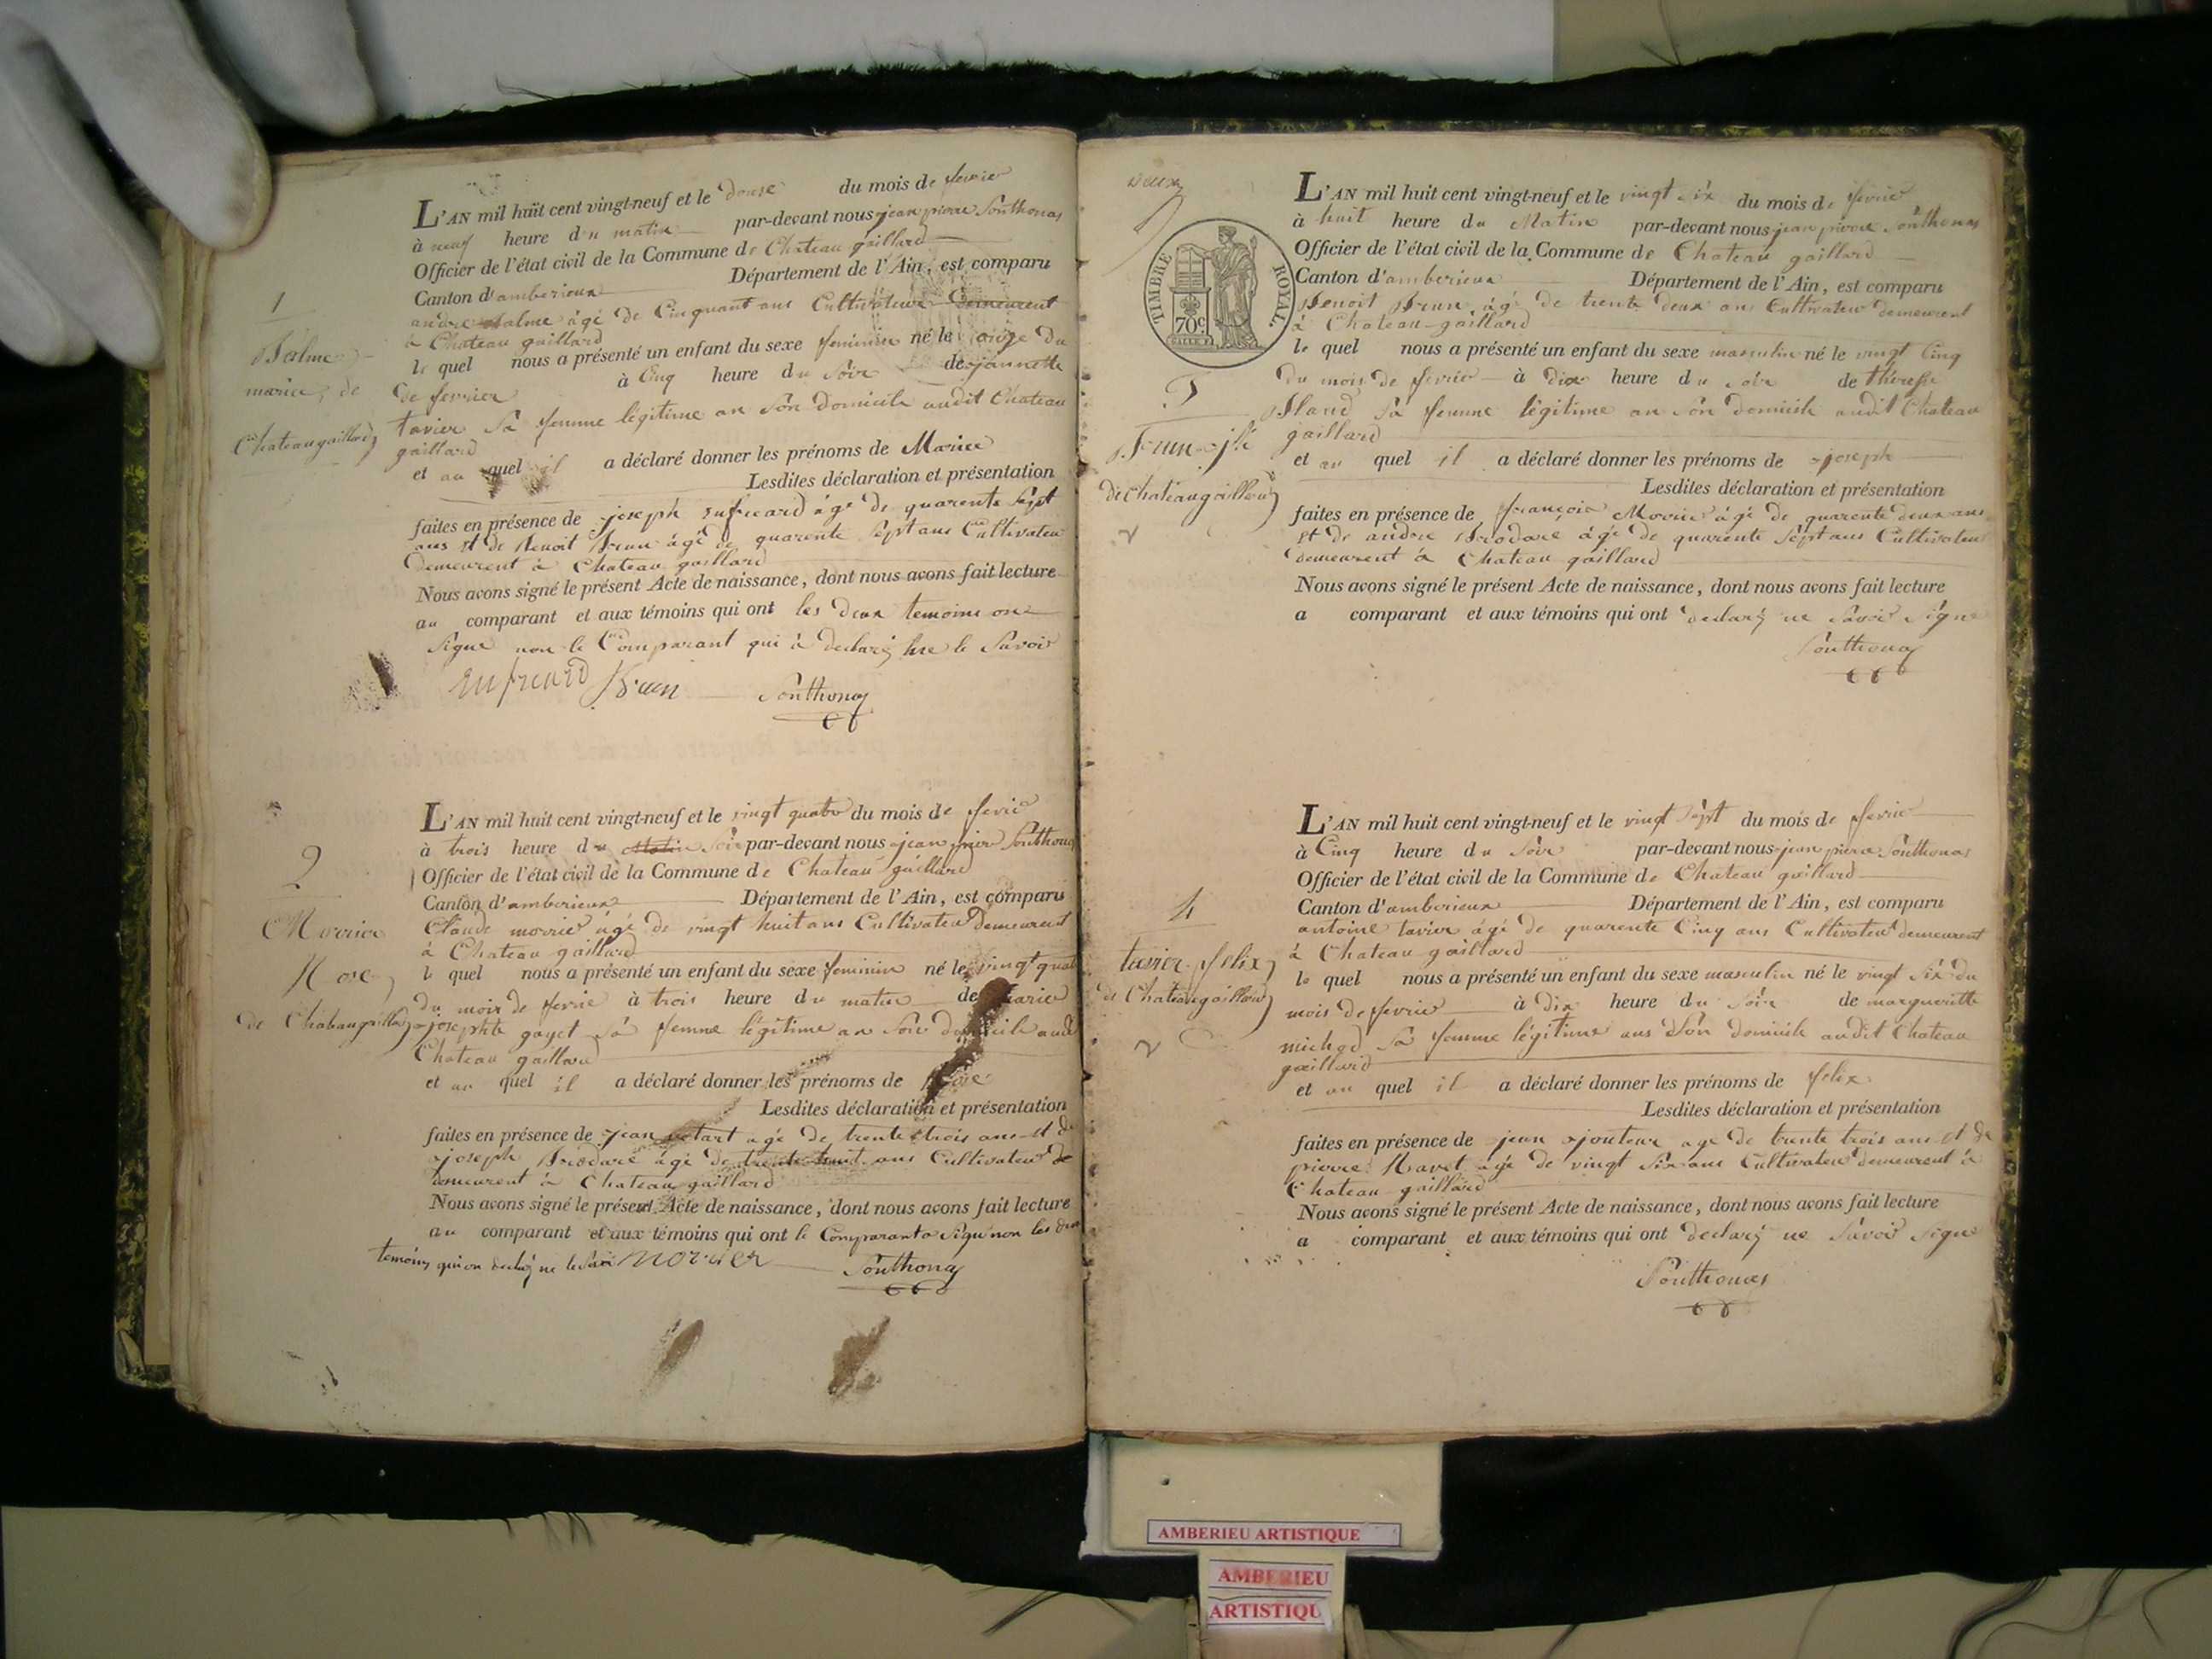 L'AN mil huit cent vingt-neuf et le douse du mois de fevrie
à neuf heure du matin par-devant nous jean pierre Southonas
Officier de l'état civil de la Commune de Chateau gaillard
Canton d'amberieux Département de l'Ain, est comparu
andre Balme âgé de Cinquant ans Cultivateur Demeurent
à Chateau gaillard
le quel nous a présenté un enfant du sexe feminin né le onze du
de fevrier à Cinq heure du Soir de jeannette
tavier Sa femme légitime an Son Domicile audit Chateau
gaillard
et au quel il a déclaré donner les prénoms de Mariee
Lesdites déclaration et présentation
faites en présence de joseph âgé de quarente Sept
ans et de Benoit Brun âgé de quarente Sept ans Cultivateu
Demeurent à Chateau gaillard
Nous avons signé le présent Acte de naissance, dont nous avons fait lecture
au comparant et aux témoins qui ont les deux temoins on
Signe non le Comparant qui à declarez le Savoir
Brun Southonas
1
mariee de
Chateaugaillard
L'AN mil huit cent vingt-neuf et le vingt quatre du mois de fevrie
à trois heure du Matin Soir par-devant nous jean Southonas
Officier de l'état civil de la Commune de Chateau gaillard
Canton d'amberieux Département de l'Ain, est comparu
Claude morrier âgé de vingt huit ans Cultivateu Demeurent
à Chateau gaillard
le quel nous a présenté un enfant du sexe feminin né le vingt quat
du mois de fevrie à trois heure du matin de Marie
josephte gayet Sa femme légitime an Son domicile audi
Chateau gaillard
et au quel il a déclaré donner les prénoms de Rose
Lesdites déclaration et présentation
faites en présence de jean âgé de trente trois ans et de
joseph Brodare âgé de trente huit ans Cultivateu de
demeurent à Chateau gaillard
Nous avons signé le présent Acte de naissance, dont nous avons fait lecture
au comparant et aux témoins qui ont le Comparant a Signé non les deux
temoins qui on declarez ne le Savoir morrier Southonas
2
Morrier
Rose
de Chateaugaillard
deux
TIMBRE ROYAL.
70c.
L'AN mil huit cent vingt-neuf et le vingt Six du mois de fevrie
à huit heure du Matin par-devant nous jean pierre Southonas
Officier de l'état civil de la Commune de Chateau gaillard
Canton d'amberieux Département de l'Ain, est comparu
Benoit Brun âgé de trente deux ans Cultivateu demeurent
à Chateau gaillard
le quel nous a présenté un enfant du sexe masculin né le vingt Cinq
du mois de fevrie à dix heure du soir de thérese
Bland Sa femme légitime an Son domicile audit Chateau
gaillard
et au quel il a déclaré donner les prénoms de joseph
Lesdites déclaration et présentation
faites en présence de françois Morrier âgé de quarente deux ans
et de andre Brodare âgé de quarente Sept ans Cultivateu
demeurent à Chateau gaillard
Nous avons signé le présent Acte de naissance, dont nous avons fait lecture
a comparant et aux témoins qui ont declarez ne Savoir Signe
Southonas
3
Brun jph
de Chateaugaillard
L'AN mil huit cent vingt-neuf et le vingt Sept du mois de fevrie
à Cinq heure du Soir par-devant nous jean piere Southonas
Officier de l'état civil de la Commune de Chateau gaillard
Canton d'amberieux Département de l'Ain, est comparu
antoine tavier âgé de quarente Cinq ans Cultivateu demeurent
à Chateau gaillard
le quel nous a présenté un enfant du sexe masculin né le vingt Six du
mois de fevrie à dix heure du Soir de margueritte
michod Sa femme légitime ans Son domicile audit Chateau
gaillard
et au quel il a déclaré donner les prénoms de felix
Lesdites déclaration et présentation
faites en présence de jean âge de trente trois ans et de
pierre Ravet âgé de vingt Six ans Cultivateu demeurent à
Chateau gaillard
Nous avons signé le présent Acte de naissance, dont nous avons fait lecture
a comparant et aux témoins qui ont declarez ne Savoir Signe
Southonas
4
tavier felix
de Chateaugaillard
AMBERIEU ARTISTIQUE
AMBERIEU
ARTISTIQU